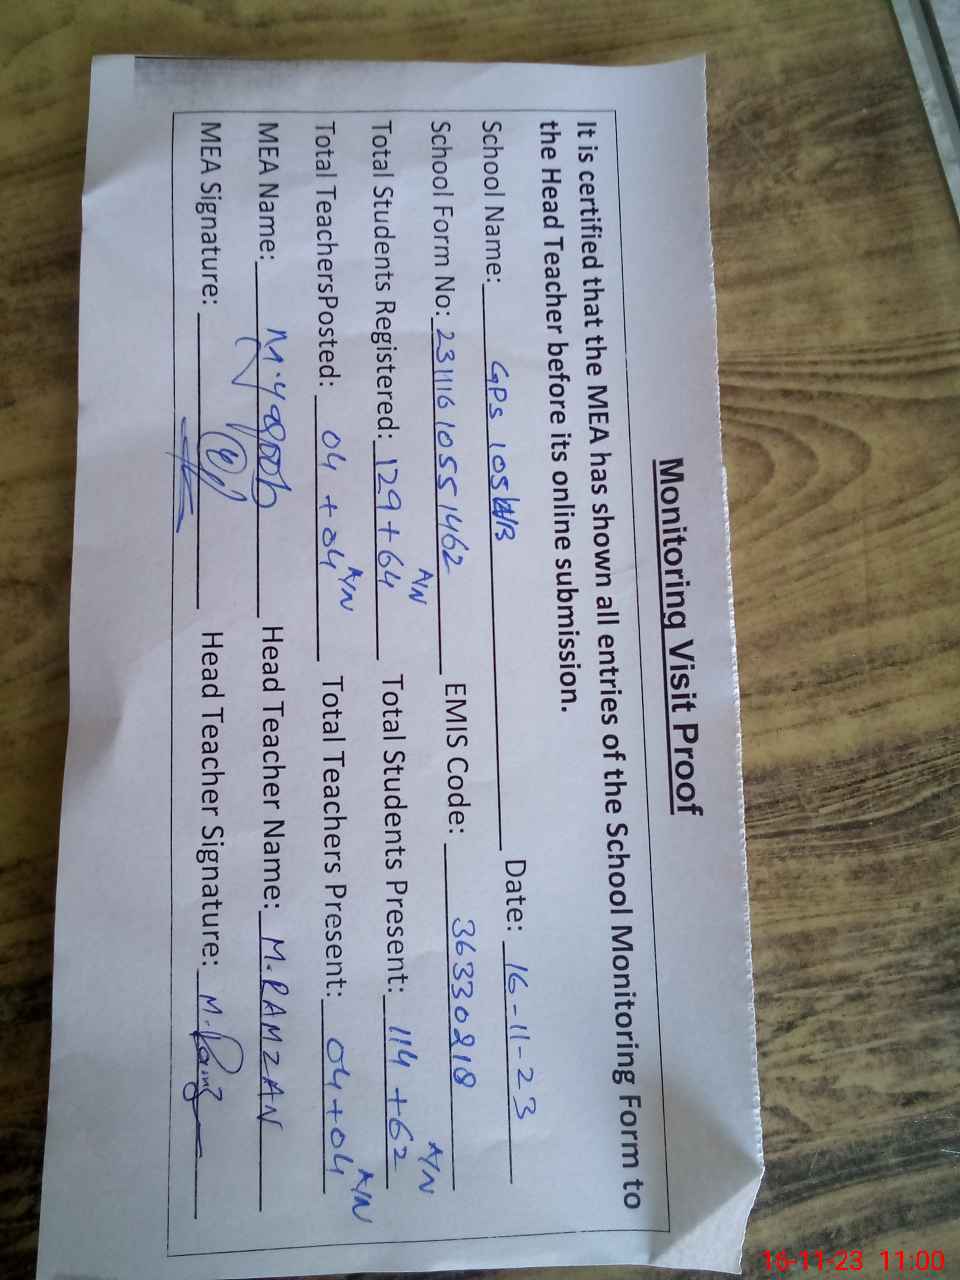 Monitoring Visit Proof
It is certified that the MEA has shown all entries of the School Monitoring Form to
the Head Teacher before its online submission.
School Name: GPS 105 W/B Date: 16-11-23
School Form No: 231116 1055 1462 EMIS Code: 36330218
Total Students Registered: 129+64 A/N Total Students Present: 114+62 A/N
Total TeachersPosted: 04+04 A/N Total Teachers Present: 04+04 A/N
MEA Name: M. Head Teacher Name: M. RAMZAN
MEA Signature: Head Teacher Signature: M.
16-11-23 11:00